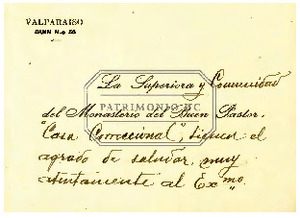 VALPARAISO
La Superiora y Comunidad
PATRIMONIO UC
del Monasterio del Buen Pastor,
"Casa Correccional", tienen el
agrado de saludar, muy
atentamente al Exmo.